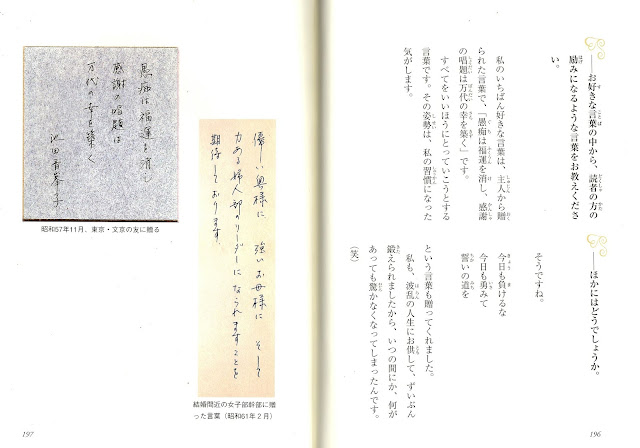 ――お好きな言葉の中から、読者の方の
励みになるような言葉をお教えくださ
い。
私のいちばん好きな言葉は、主人から贈
られた言葉で、「愚痴は福運を消し、感謝
の唱題は万代の幸を築く」です。
すべてをいいほうにとっていこうとする
言葉です。その姿勢は、私の習慣になった
気がします。
――ほかにはどうでしょうか。
そうですね。
今日も負けるな
今日も勇みて
誓いの道を
という言葉も贈ってくれました。
私も、波乱の人生にお供して、ずいぶん
鍛えられましたから、いつの間にか、何が
あっても驚かなくなってしまったんです。
(笑)
196
優しい奥様に 強いお母様に そして
力ある婦人部のリーダーになられますことを
期待しております。
結婚間近の女子部幹部に贈
った言葉(昭和61年2月)
愚痴は福運を消し
感謝の唱題は
万代の幸を築く
池田香峯子
昭和57年11月、東京・文京の友に贈る
197